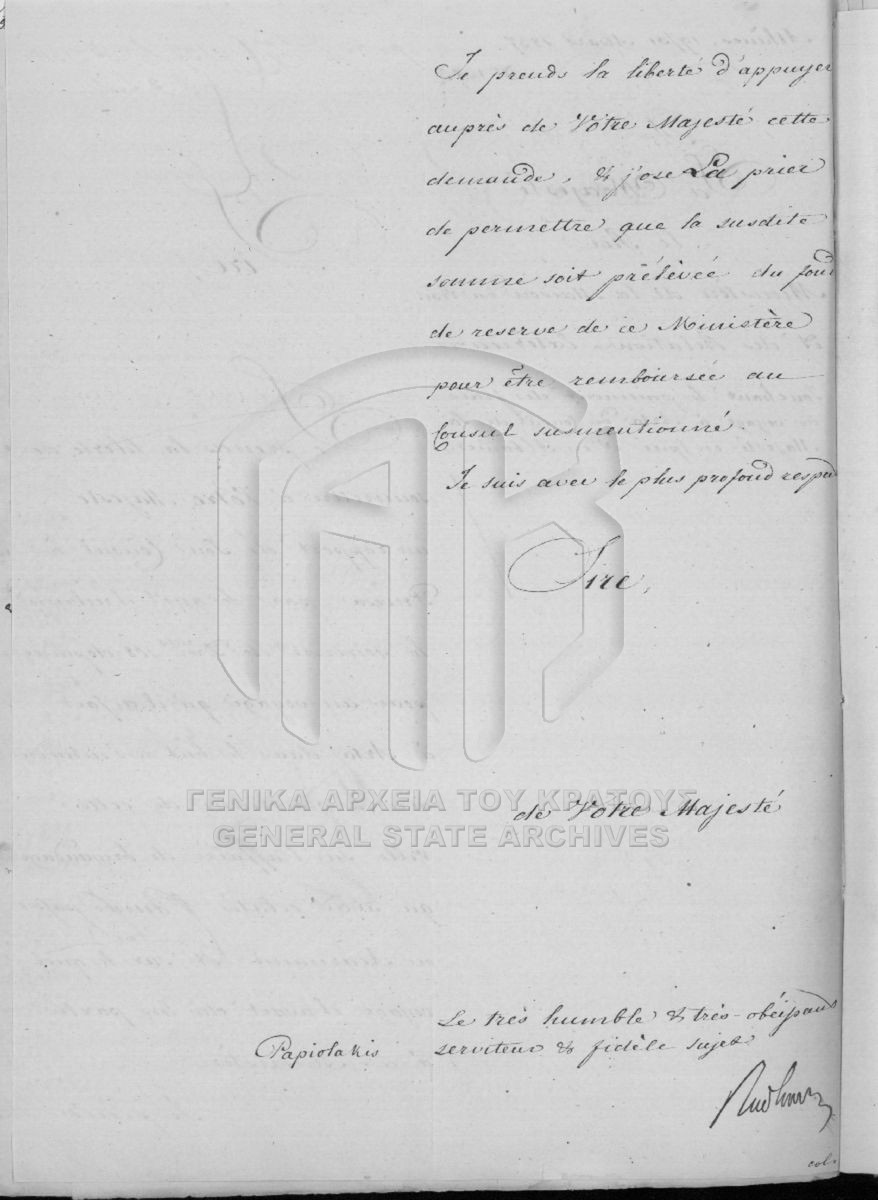 Je prends la liberté d'appuyer
auprès de Vôtre Majesté cette
demande, & j'ose La prier
de permettre que la susdite
somme soit prélevée du fond
de reserve de ce Ministère
pour être remboursée au
Consul susmentionné.
Je suis avec le plus profond respect
Sire,
de Vôtre Majesté
ΓΕΝΙΚΑ ΑΡΧΕΙΑ ΤΟΥ ΚΡΑΤΟΥΣ
GENERAL STATE ARCHIVES
Le très humble & très-obéissant
serviteur & fidèle sujet
Papiolakis
col.